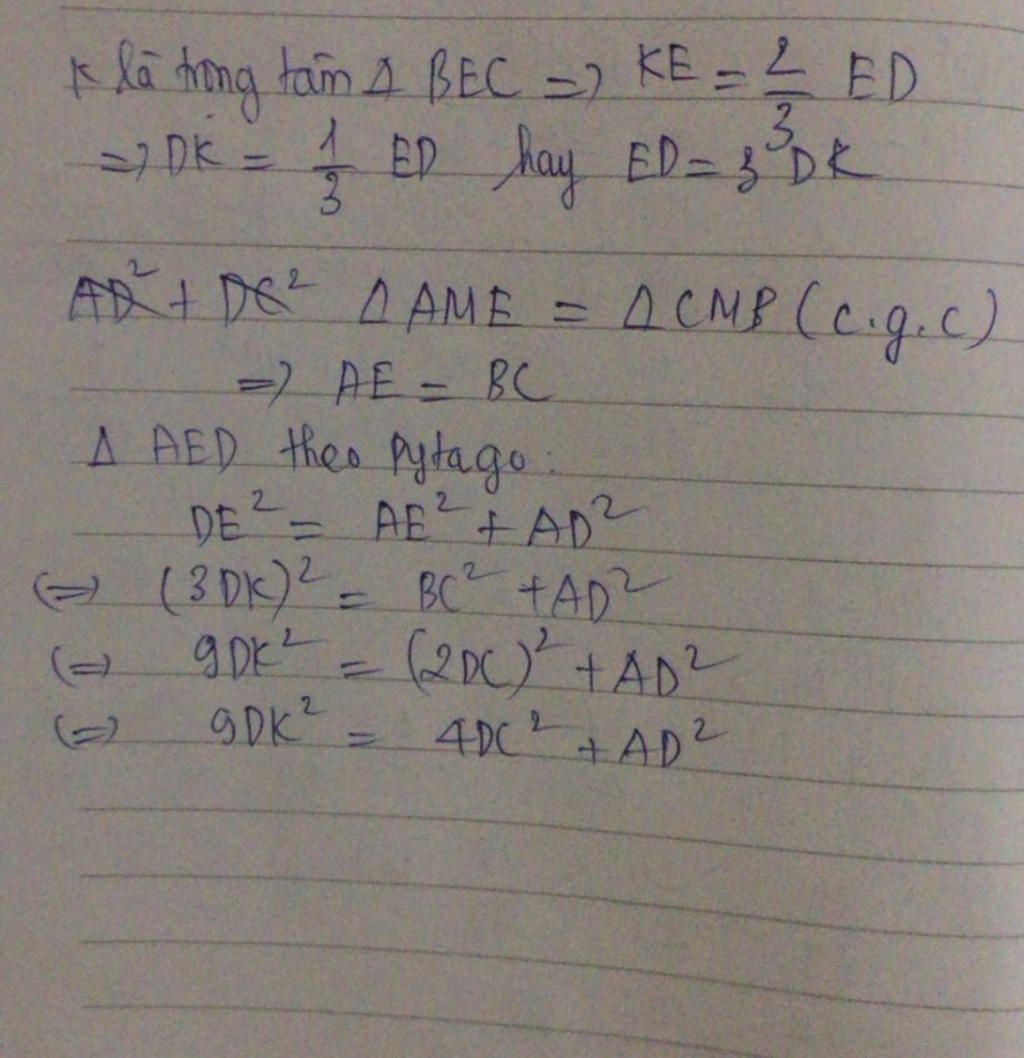 K là trọng tâm Δ BEC => KE = 2/3 ED
=> DK = 1/3 ED hay ED = 3DK
AD² + DC² Δ AME = Δ CMB (c.g.c)
=> AE = BC
Δ AED theo pytago:
DE² = AE² + AD²
(=) (3DK)² = BC² + AD²
(=) 9DK² = (2DC)² + AD²
(=) 9DK² = 4DC² + AD²